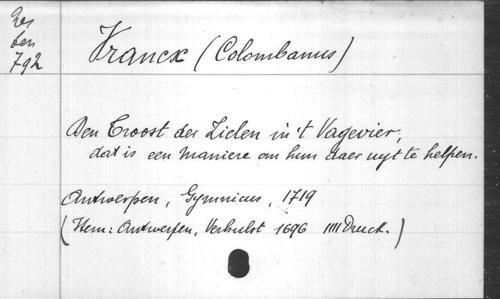 Res
ben
792
Vranex (Colombanus)
Den Troost der Zielen in 't Vagevier,
dat is een maniere om hun daer uyt te helpen.
Antwerpen, Gymnicus, 1719
(Item: Antwerpen, Verhulst 1696 IIII Druck.)